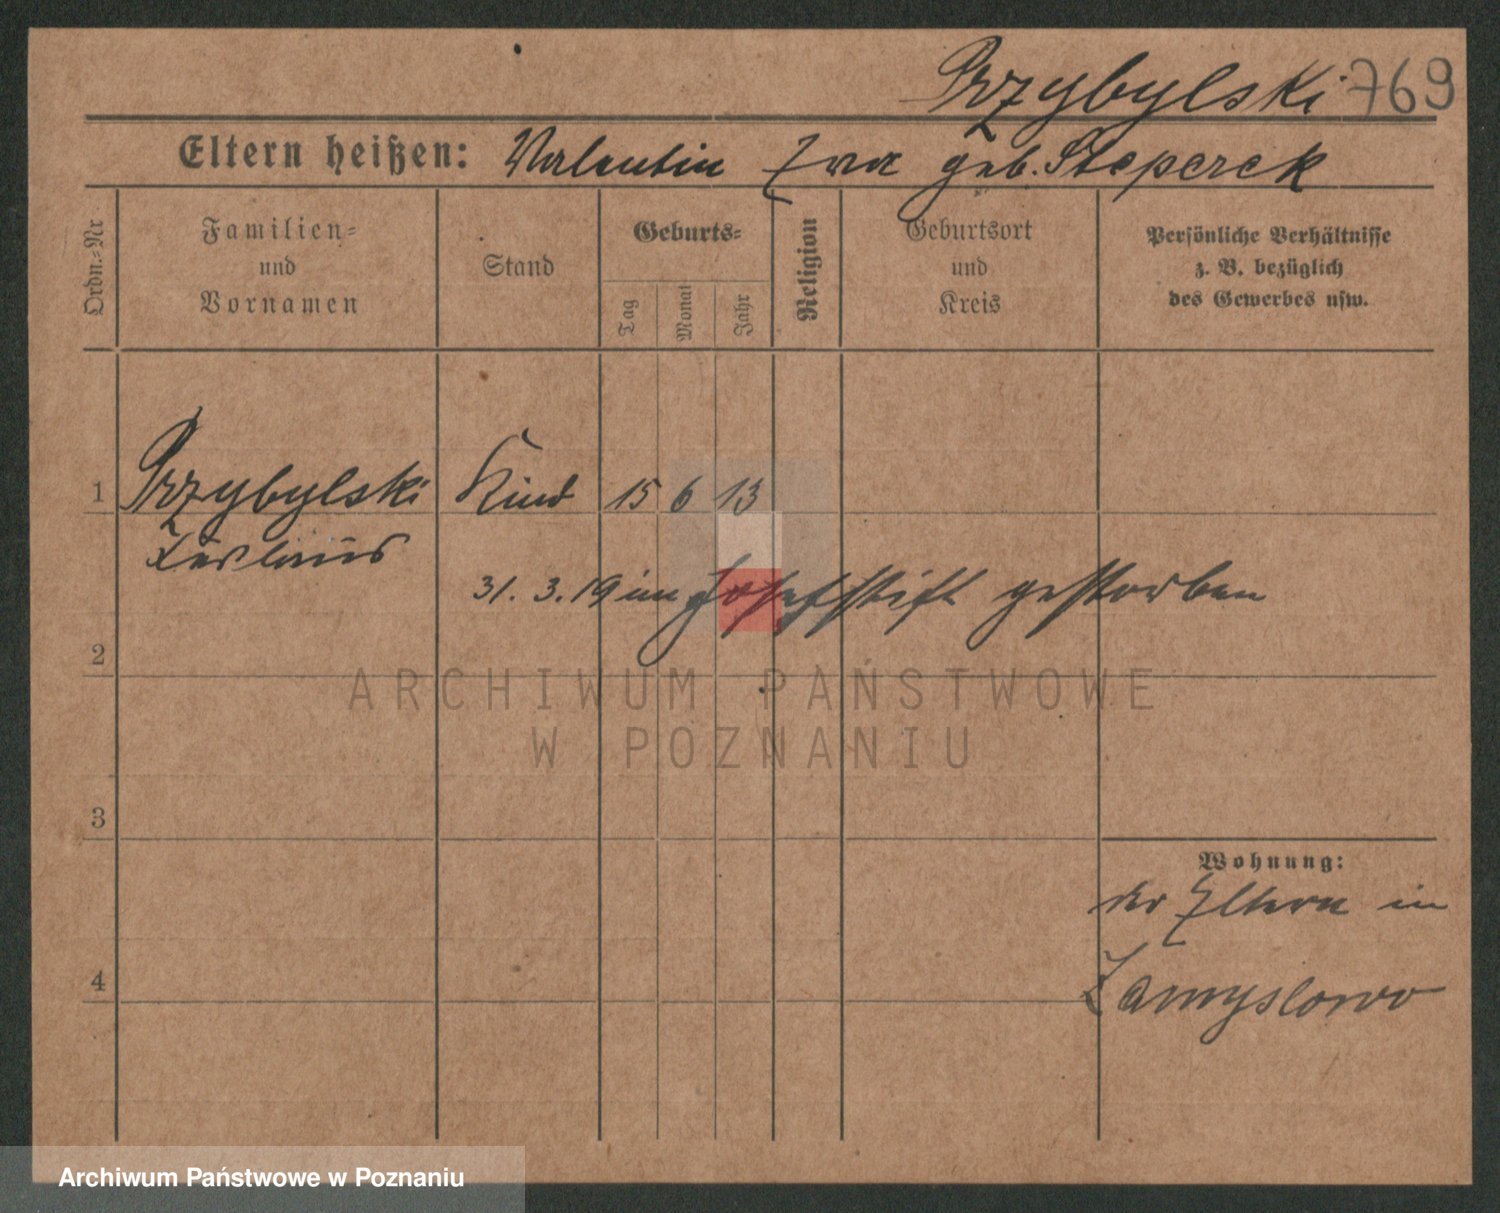 Przybylski 769
Eltern heißen: Valentin Eva geb. Steperek
Ordn.-Nr
Familien-
und
Vornamen
Stand
Geburts-
Tag
Monat
Jahr
Religion
Geburtsort
und
Kreis
Persönliche Verhältnisse
z. B. bezüglich
des Gewerbes usw.
1 Przybylski Kind 15 6 13
31. 3. 19 im Josefstift gestorben
2
ARCHIWUM PAŃSTWOWE
W POZNANIU
3
Wohnung:
der Eltern in
4
Zamyslowo
Archiwum Państwowe w Poznaniu